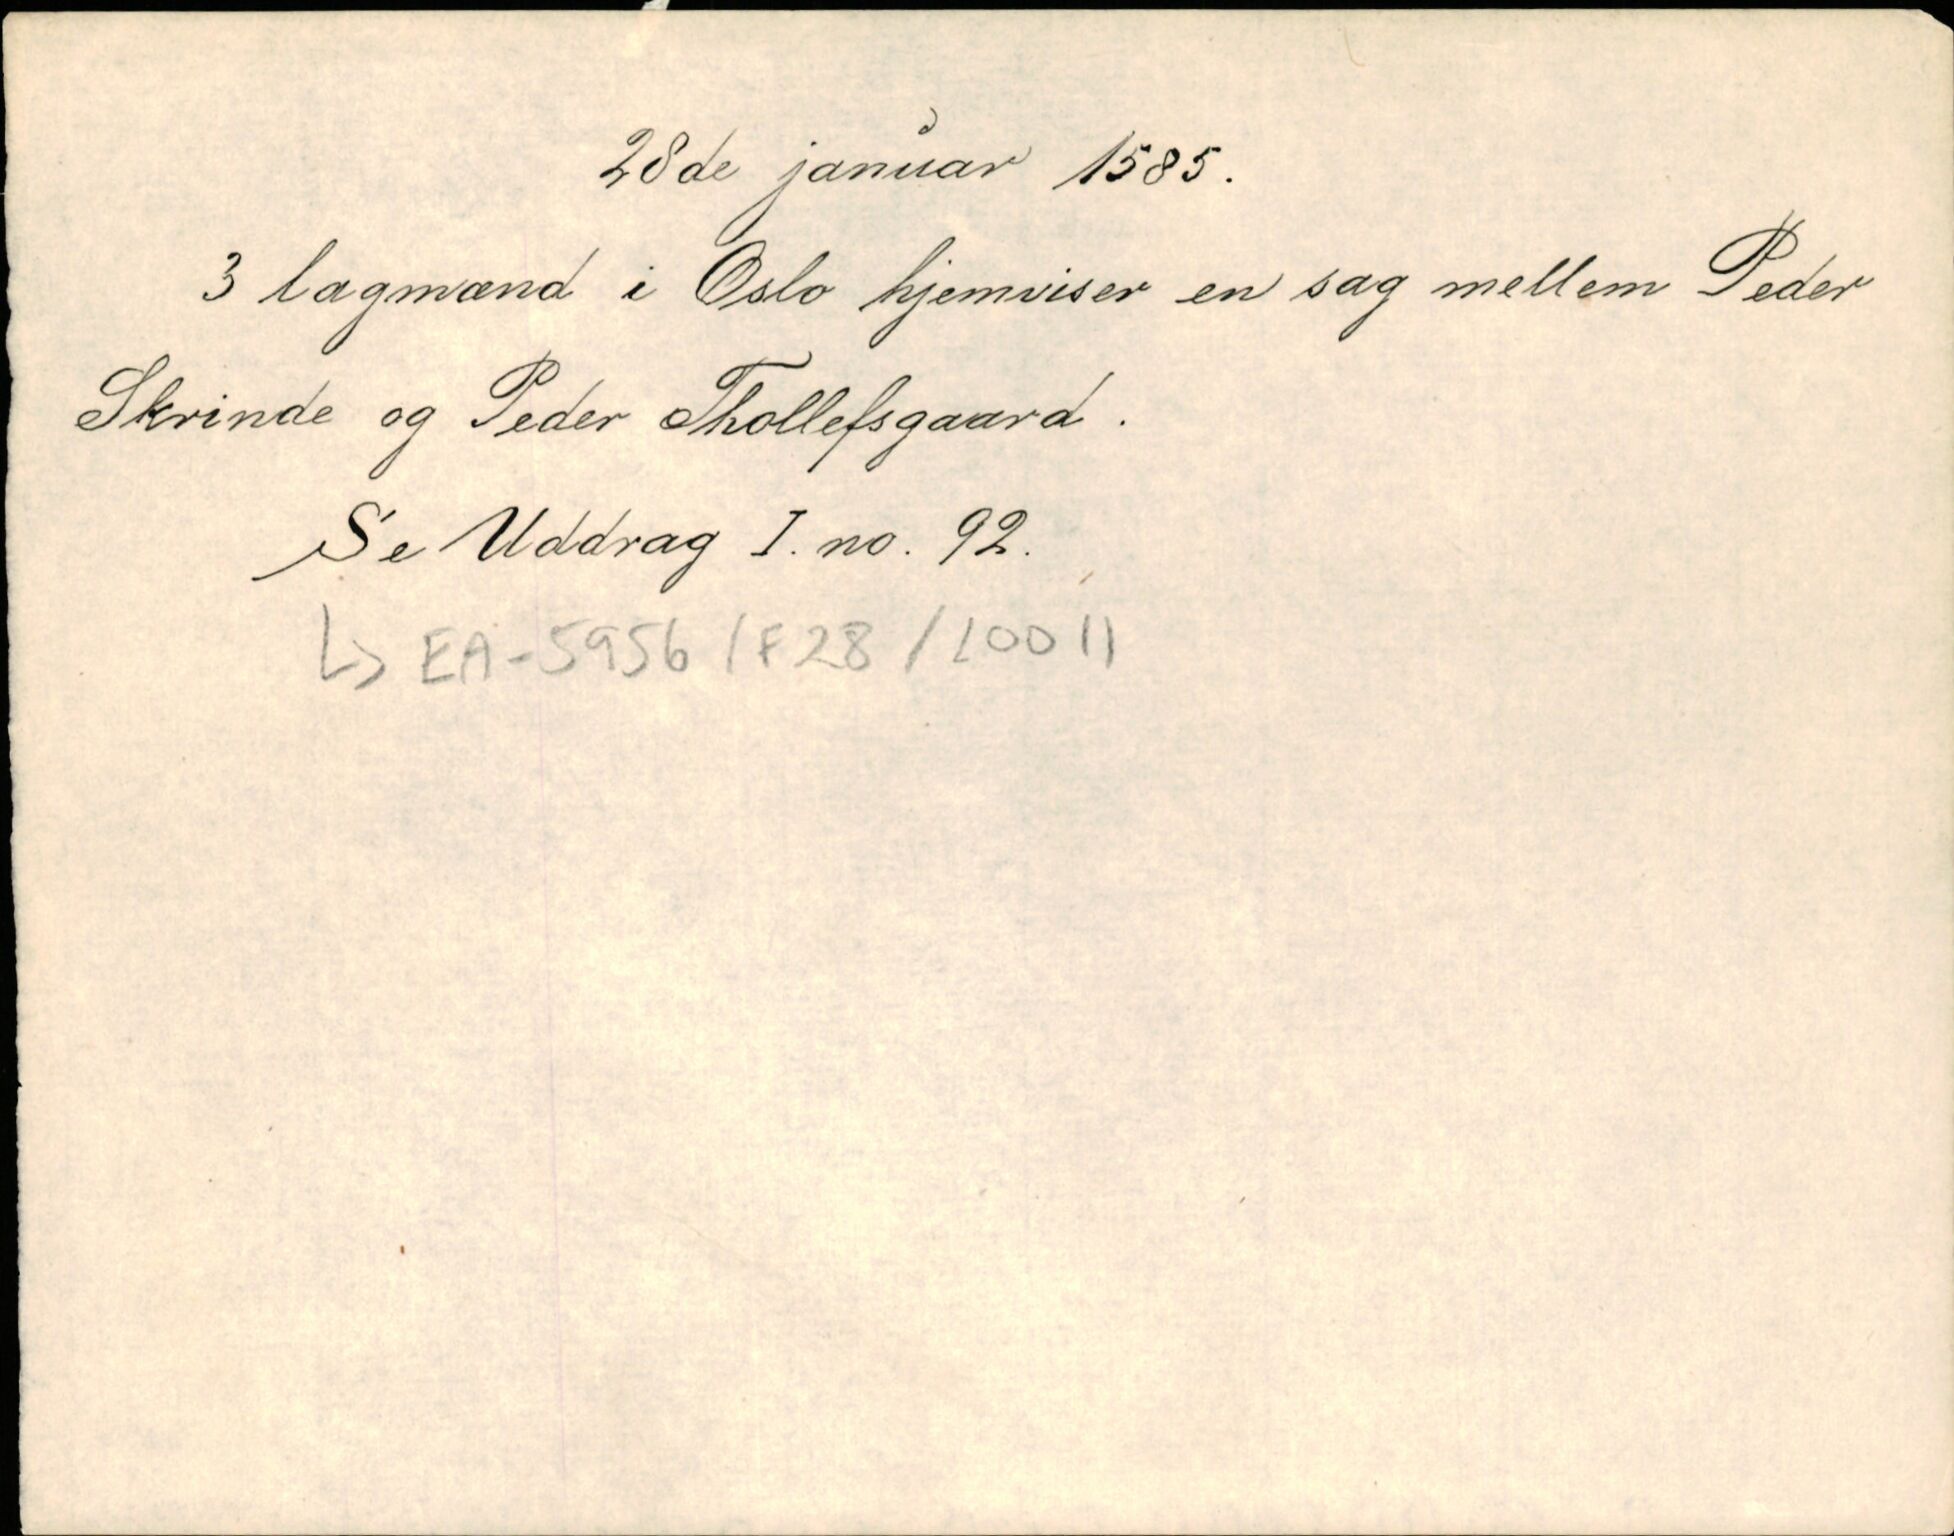 28de januar 1585.
3 lagmænd i Oslo hjemviser en sag mellem Peder
Skrinde og Peder Thollefsgaard.
Se Uddrag I. no. 92.
↳ EA-5956/F28/10011